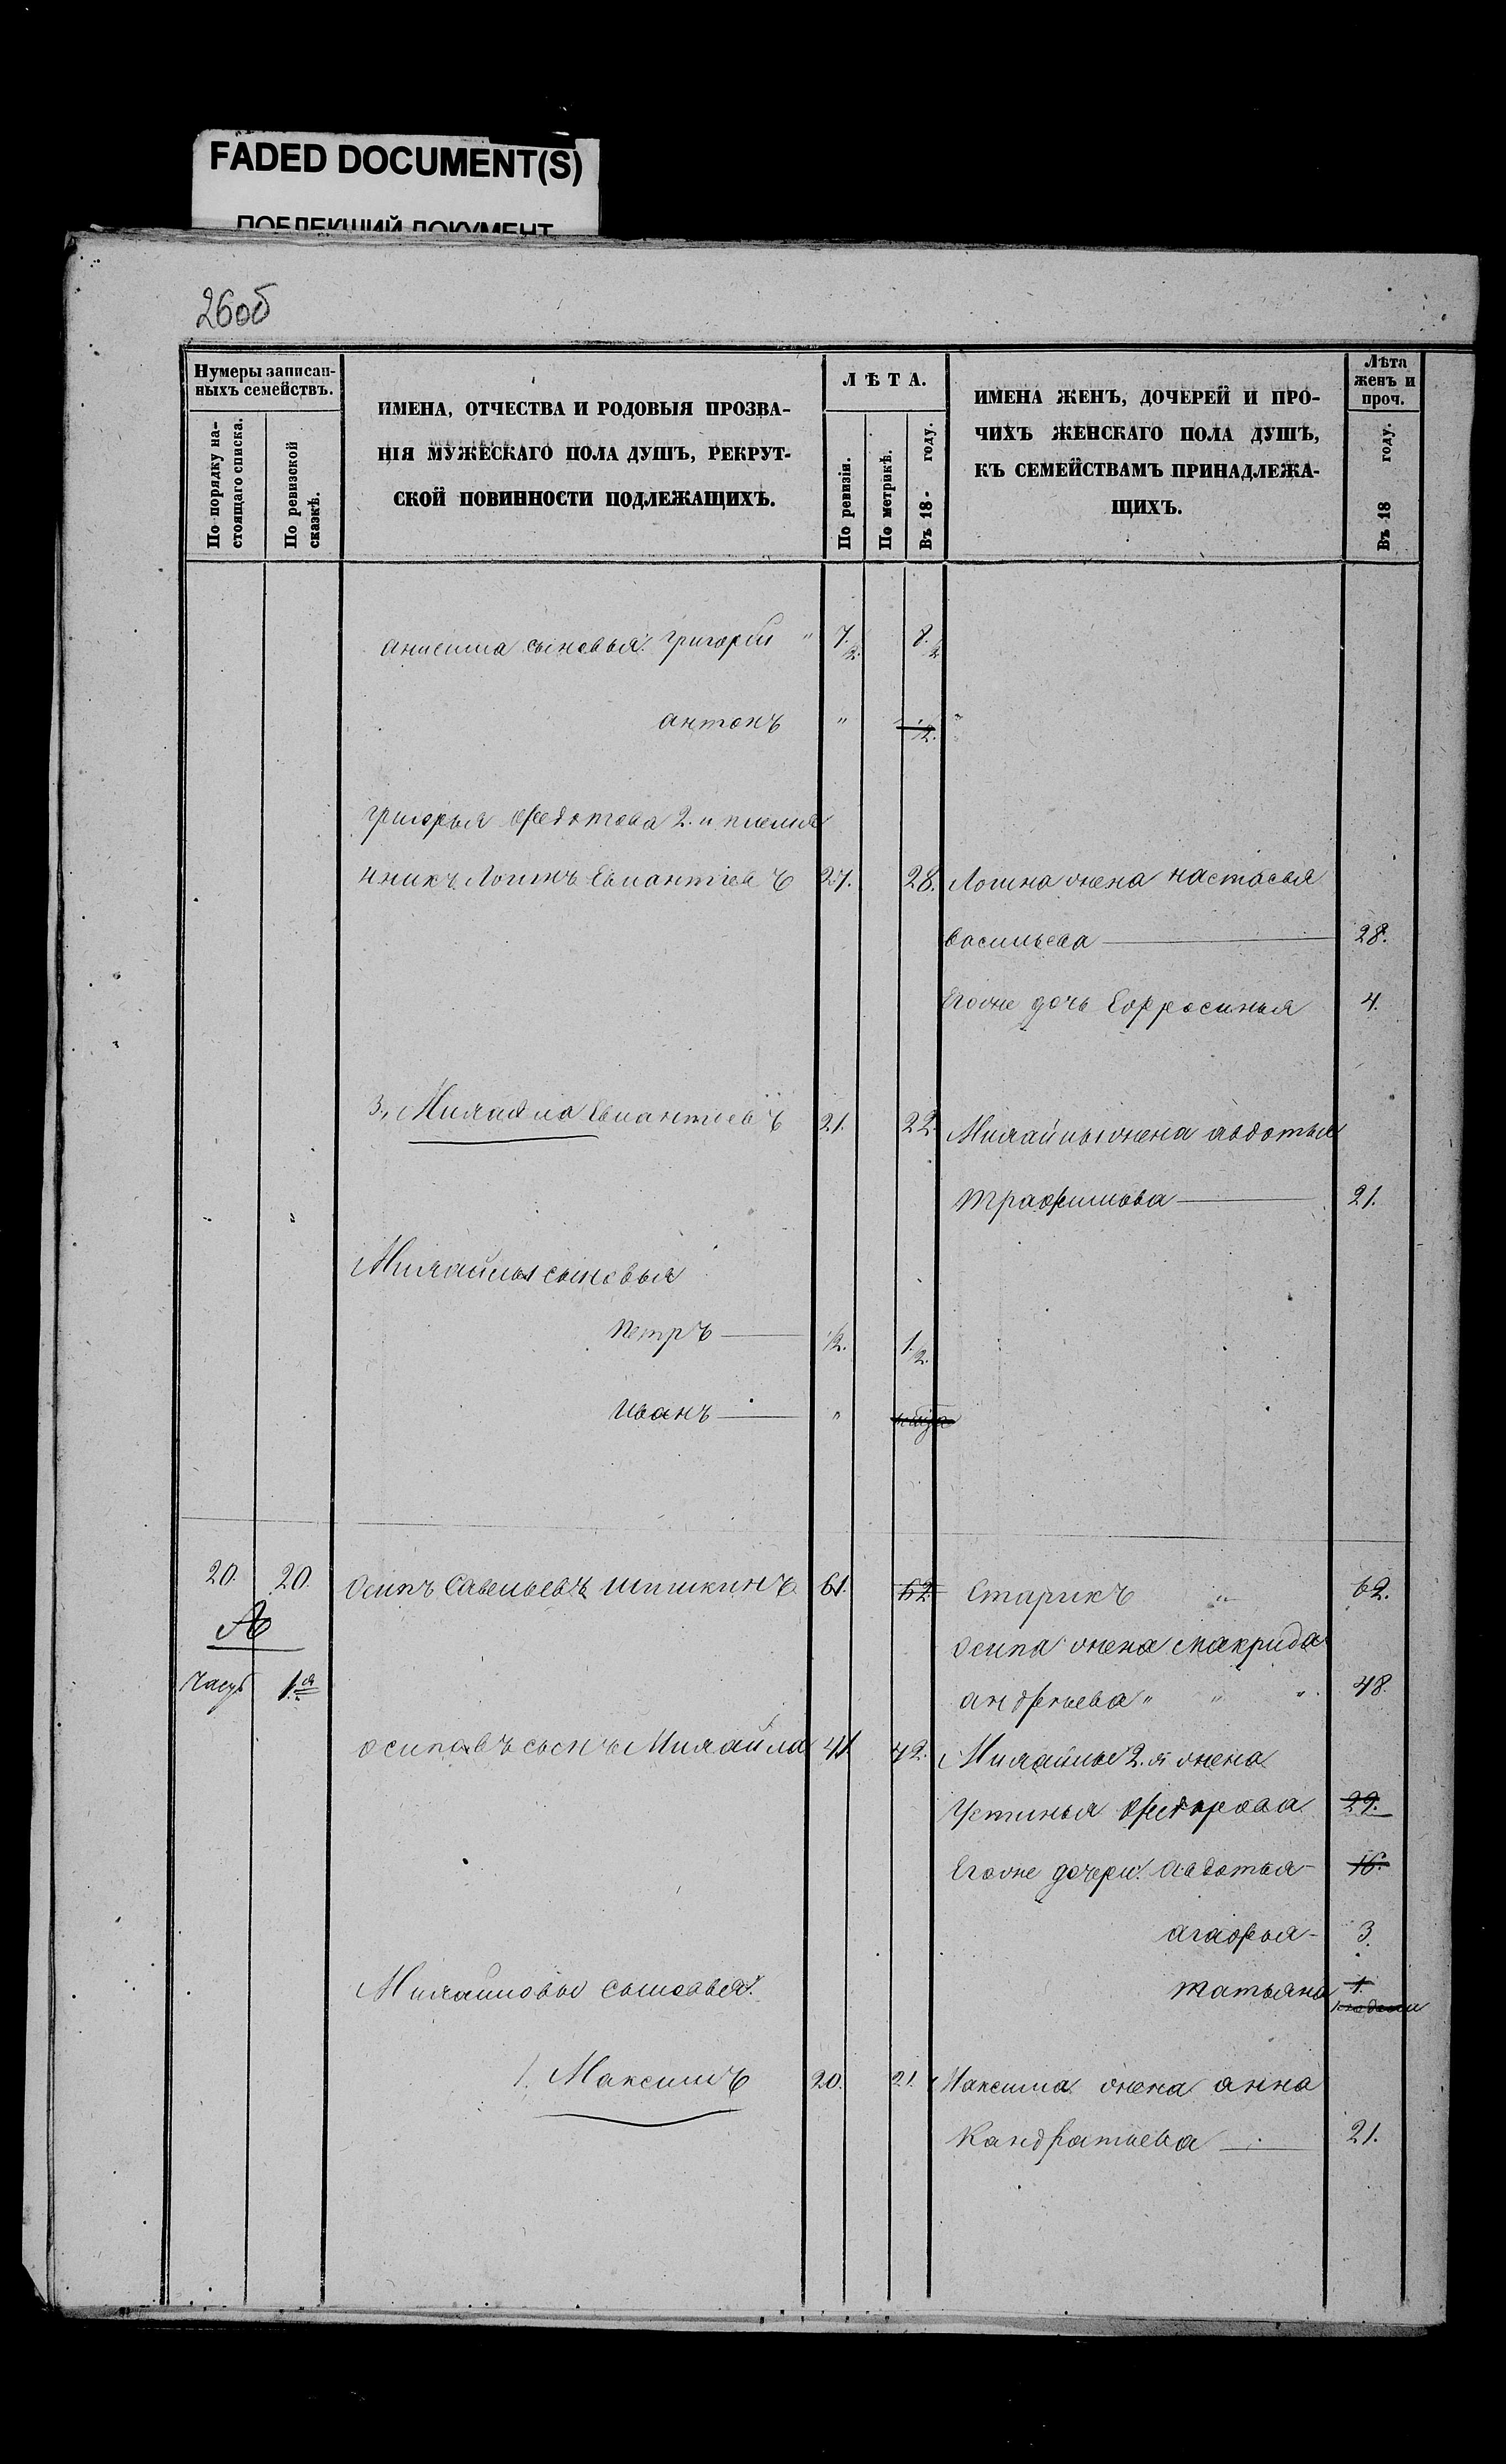 FADED DOCUMENT(S)
ПОБЛЕКШИЙ ДОКУМЕНТ
26об
Нумеры записан-
ныхъ семействъ.
По порядку на-
стоящаго списка.
По ревизской
сказкѣ.
ИМЕНА, ОТЧЕСТВА И РОДОВЫЯ ПРОЗВА-
НІЯ МУЖЕСКАГО ПОЛА ДУШЪ, РЕКРУТ-
СКОЙ ПОВИННОСТИ ПОДЛЕЖАЩИХЪ.
ЛѢТА.
По ревизіи.
По метрикѣ.
Въ 18- году.
ИМЕНА ЖЕНЪ, ДОЧЕРЕЙ И ПРО-
ЧИХЪ ЖЕНСКАГО ПОЛА ДУШЪ,
КЪ СЕМЕЙСТВАМЪ ПРИНАДЛЕЖА-
ЩИХЪ.
Лѣта
женъ и
проч.
Въ 18 году.
анисима сыновья: григорій " 7. 1/2. 8. 1/2
антонъ " 1/2. "
григорья федотова 2. и племя
нникъ Логинъ Евлантіевъ 27. 28. Логина жена настасья
васильева 28.
Егоже дочь Еофросинья 4.
3, Михайла Евлантіевъ 21. 22. Михайлы жена авдотья
трафимова 21.
Михайлы сыновья
петръ 1/2. 1. 1/2.
иванъ "
20. 20. Осипъ Савельевъ шишкинъ 61. 62. Старикъ " 62.
А осипа жена макрида
часть 1.я андреева " " " 48.
осиповъ сынъ Михайла 41 42. Михайлы 2.я жена
Устинья федорова 29.
Егоже дочери: авдотья 16.
агафья 3.
Михайловы сыновья: татьяна 1.
1. Максимъ 20. 21. Максима жена анна
Кандратьева 21.